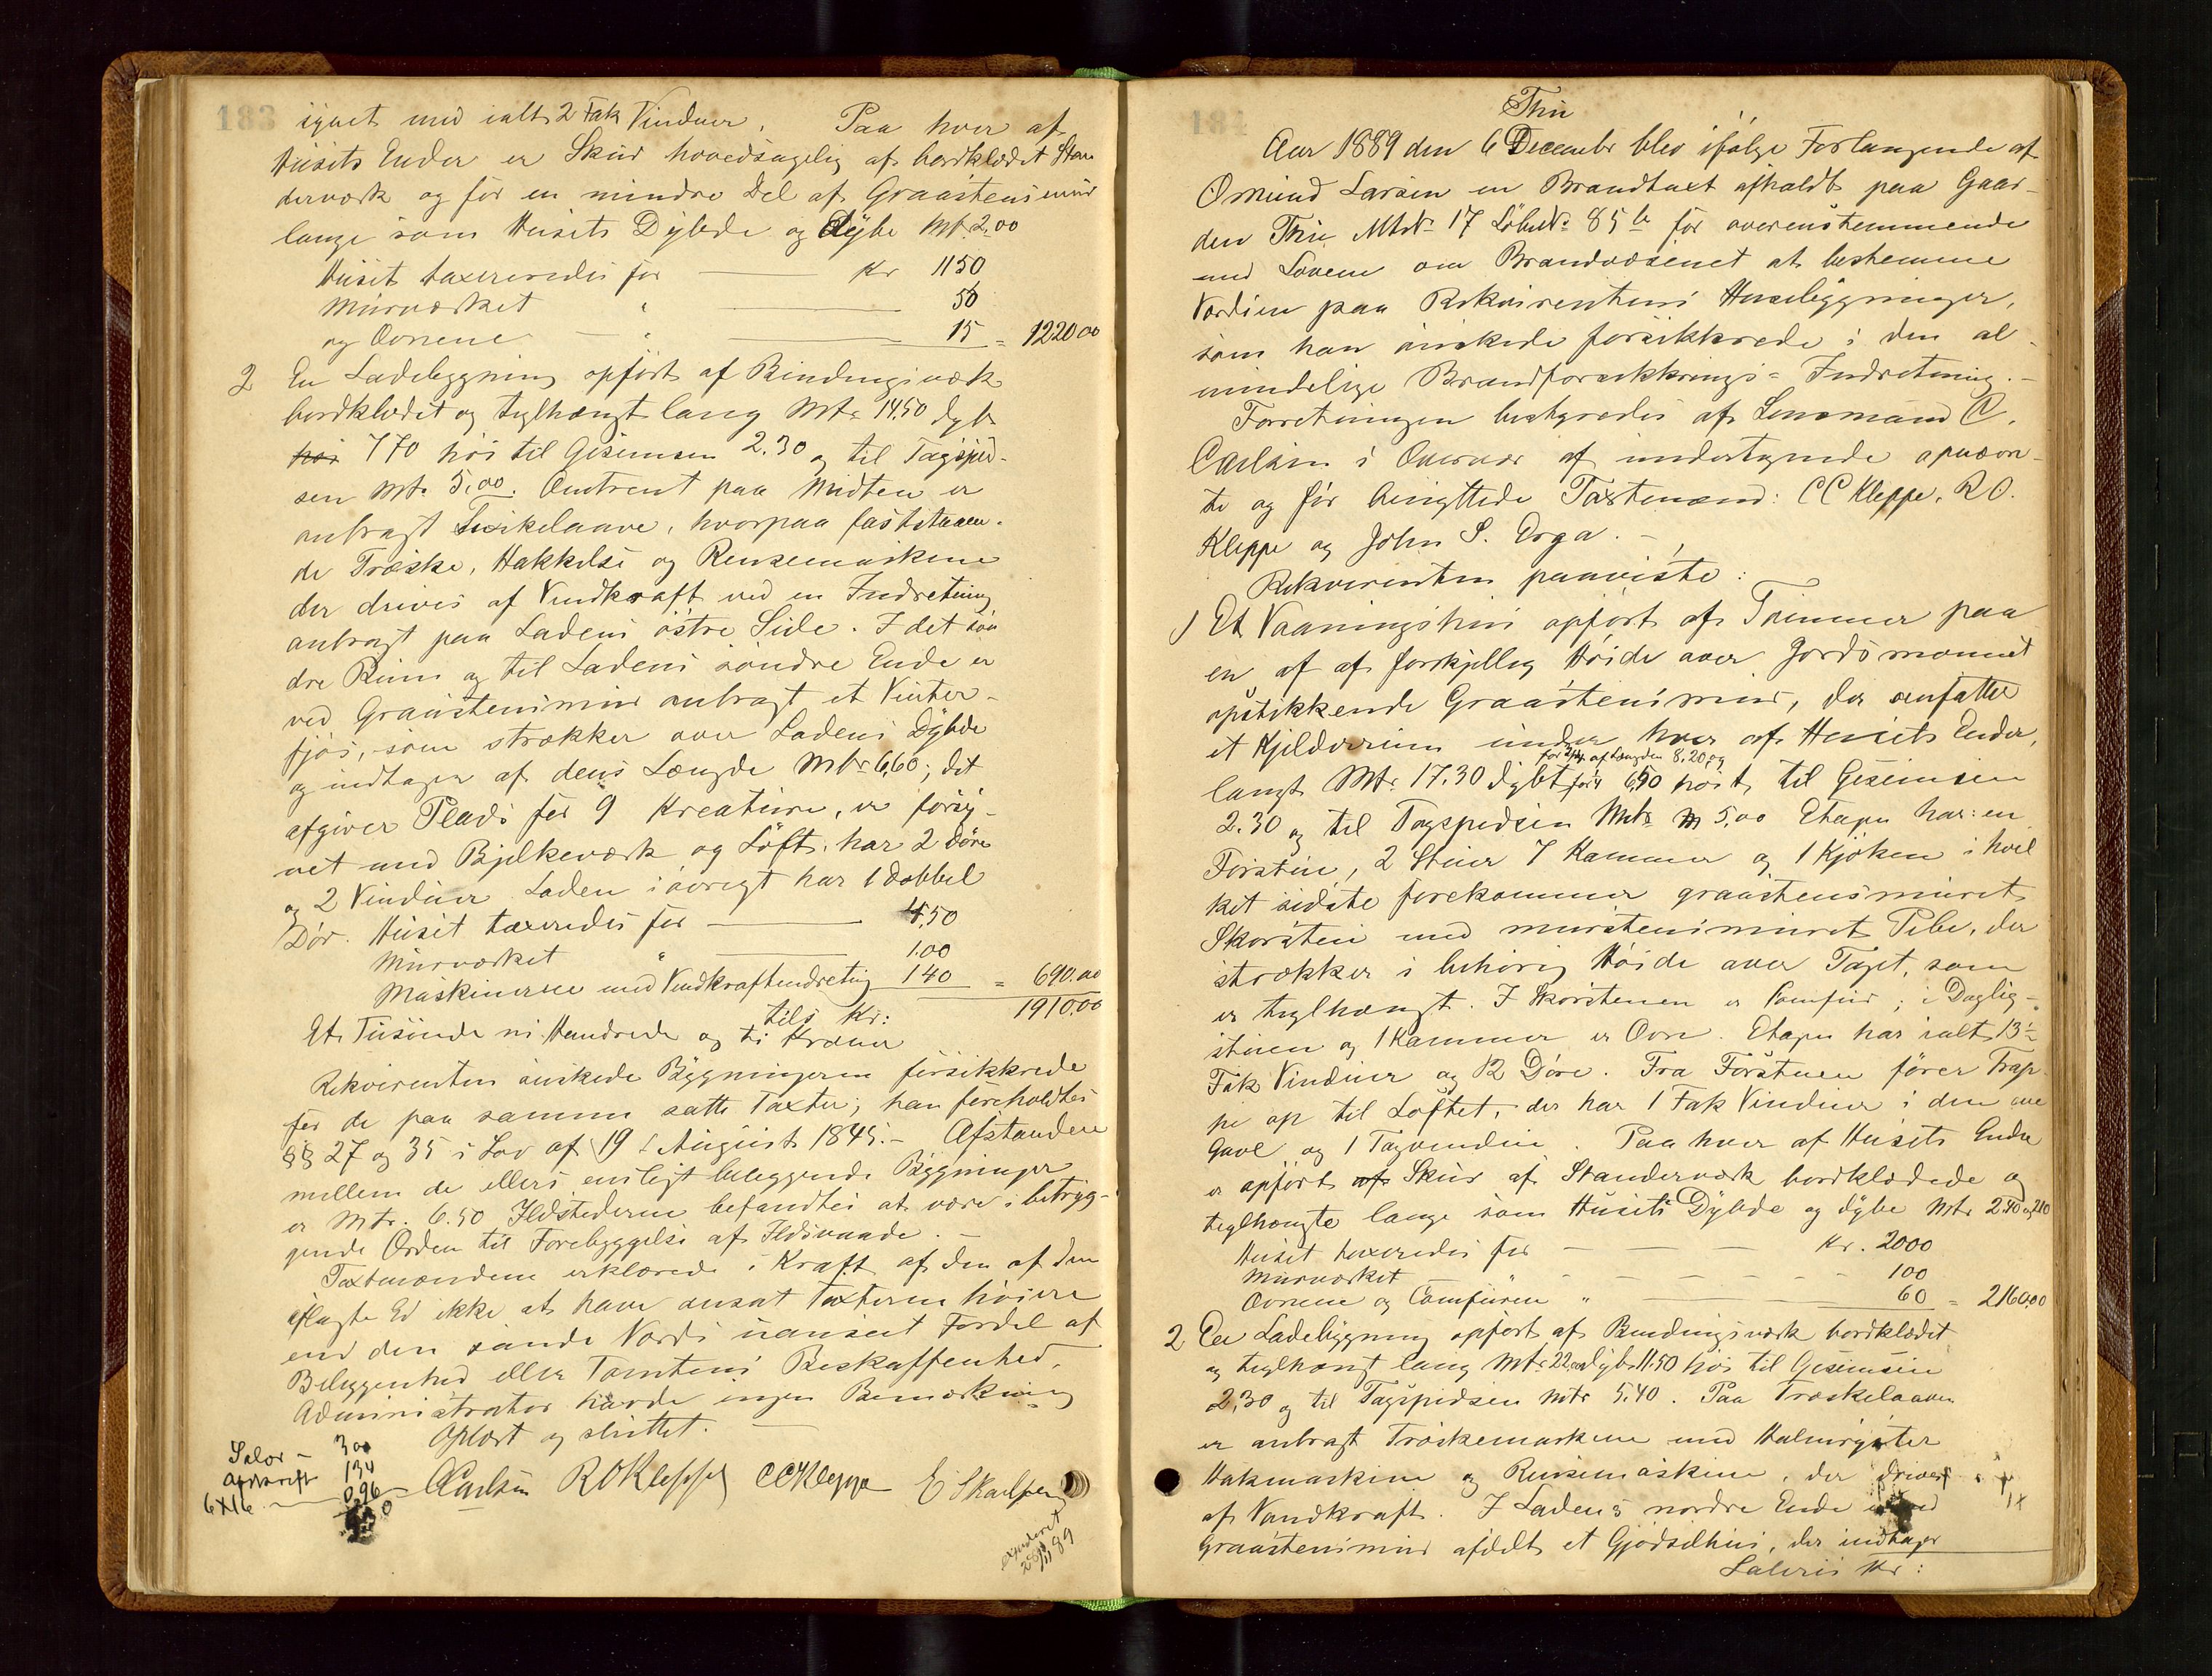 183
synet med ialt 2 Fak Vinduer. Paa hver af
Husets Ender er Skur hovedsagelig af bordklædet Stan
derværk og for en mindre Del af Graastensmur
lange som Husets Dybde og dybe Mtr. 2.00
Huset taxeredes for Kr 1150
Murværket " 50
og Ovnene " 15 = 1220 00
2 En Ladebygning opført af Bindingsværk
bordklædet og teglhængt lang Mtr 14.50 dyb
høi 770 høi til Gesimsen 2.30 og til Tagspid-
sen Mtr. 5.00. Omtrent paa Midten er
anbragt Træskelaave, hvorpaa faststaaen-
de Træske, Hakkelse og Rensemaskine
der drives af Vindkraft ved en Indretning
anbragt paa Ladens østre Side. I det søn
dre Rum og til Ladens søndre Ende er
ved Graastensmur anbragt et Vinter-
fjøs, som strækker over Ladens Dybde
og indtager af dens Længde Mtr 6,60; det
afgiver Plads for 9 Kreature, er forsy-
net med Bjelkeværk og Loft, har 2 Døre
og 2 Vinduer. Laden iøvrigt har 1 dobbel
Dør. Huset taxeredes for 4,50
Murværket " 1.00
Maskinerne med Vindkraftindretning 140 = 690.00
tils Kr: 1910.00
Et Tusinde ni Hundrede og ti Kroner
Rekvirenten ønskede Bygningerne forsikkrede
for de paa samme satte Taxter; han foreholdtes
§§ 27 og 35 i Lov af 19 August 1845.- Afstanden
mellem de ellers ensligt beliggende Bygninger
er Mtr. 6.50 Ildstederne befandtes at være i betryg-
gende Orden til Forebyggelse af Ildsvaade.
Taxtmændene erklærede i Kraft af den af dem
aflagte Ed ikke at have ansat Taxterne høiere
end den sande Værdi uanseet Fordel af
Beliggenhed eller Tomtens Beskaffenhed.
Administrator havde ingen Bemærkning
Oplæst og sluttet.
Salær - 3.00
Afskrift 134
6X16 096
CCarlsen ROKleppe CCKleppe E Skadberg
expederet
28/11 89
184
Thu
Aar 1889 den 6 December blev ifølge Forlangende af
Omund Larsen en Brandtaxt afholdt paa Gaar-
den Thu MtrNr 17 LøbeNr 85 b for overenstemmende
med Lovene om Brandvæsenet at bestemme
Værdien paa Rekvirentens Husebygninger,
som han ønskede forsikkrede i den al-
mindelige Brandforsikkrings-Indretning.-
Forretningen bestyredes af Lensmand C.
Carlsen i Overvær af undertegnede opnævn-
te og før benyttede Taxtmænd: CC Kleppe, R O.
Kleppe og John S. Erga.-
Rekvirenten paaviste:
1 Et Vaaningshus opført af Tømmer paa
en af af forskjellig Høide over Jordsmonnet
opstikkende Graastensmur, der omfatter
et Kjelderrum under hver af Husets Ender,
for af Længden 8,20, og
langt Mtr. 17.30 dybt for 6,50 høit til Gesimsen
2.30 og til Tagspidsen Mtr 5,00 Etagen har: en
Forstue, 2 Stuer 7 Kammer og 1 Kjøken i hvil
ket sidste forekommer graastensmuret
Skorsten med murstensmuret Pibe, der
strækker i behørig Høide over Taget, som
er teglhængt. I Skorstenen er Comfur; i Daglig-
stuen og 1 Kammer er Ovn. Etagen har ialt 13
Fak Vinduer og 12 Døre. Fra Forstuen fører Trap-
pe op til Loftet, der har 1 Fak Vinduer i den ene
Gavl og 1 Tagvindue. Paa hver af Husets Ender
er opført af Skur af Standerværk bordklædede og
teglhængte lange som Husets Dybde og dybe Mtr 2.40 og 2.10
Huset taxeredes for Kr. 2000
Murværket " 100
Ovnene og Comfuren " 60 = 2160.00
2 En Ladebygning opført af Bindingsværk bordklædet
og teglhængt lang Mtr 22.00 dyb 11.50 høi til Gesimsen
2.30 og til Tagspidsen Mtr 5.40. Paa Træskelaaven
er anbragt Træskemaskine med Halmryster
Hakmaskine og Rensemaskine, der drives
af Vandkraft. I Ladens nordre Ende er ved
Graastensmur afdelt et Gjødselhus, der indtager
Salæris Kr: